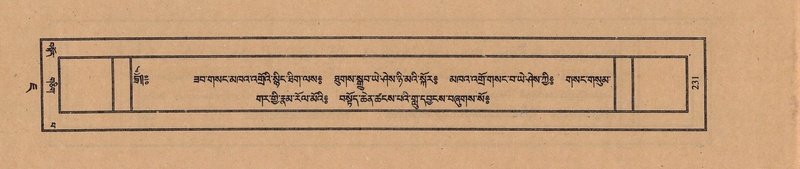 ཟབ་གསང་མཁའ་འགྲོའི་སྙིང་ཐིག་ལས༔ ཐུགས་སྒྲུབ་ཡེ་ཤེས་ཉི་མའི་སྐོར༔ མཁའ་འགྲོ་གསང་བ་ཡེ་ཤེས་ཀྱི༔ གསང་གསུམ་
གར་གྱི་རྣམ་རོལ་མོའི༔ བསྟོད་ཆེན་ཚངས་པའི་གླུ་དབྱངས་བཞུགས་སོ༔
231